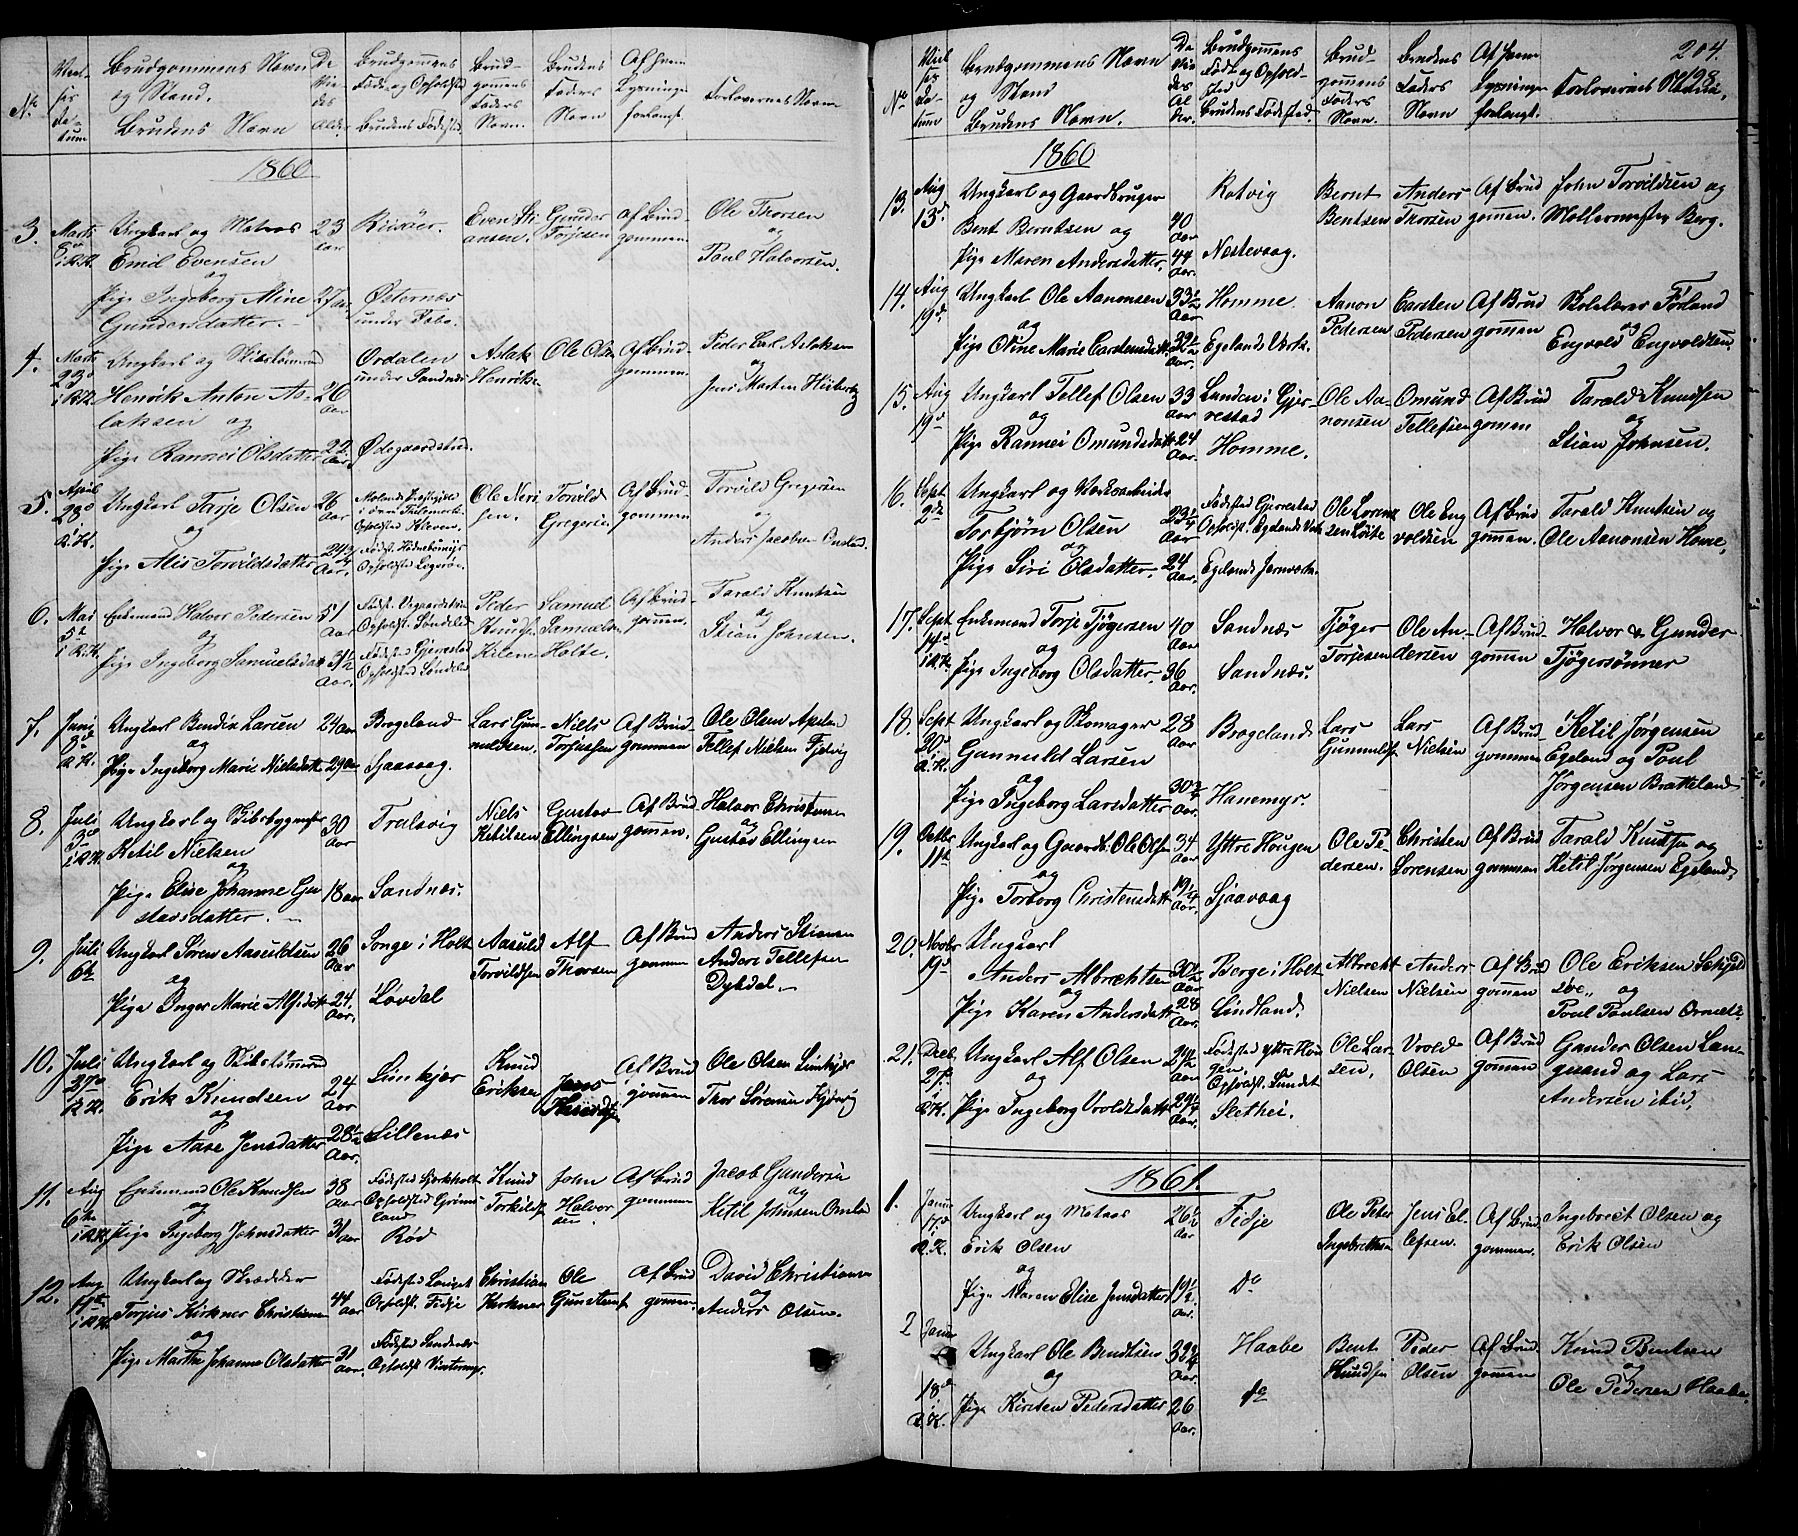 No
Viel-
ses
Da-
tum
Brudgommens Navn
og Stand.
Brudens Navn
De
Vie-
des
Alder
Brudgommens
Føde og Opholdsted
Brudens Fødested
Brud-
gomens
Faders
Navn.
Brudens
Faders
Navn
Af hvem
Lysninge
forlangt.
Forlovernes Navne
1860
3.
Marts
i R.K.
Ungkarl og Matros
Emil Evensen
og
Pige Ingeborg Mine
Gundersdatter.
23
aar
27 aar
Riisøer.
Østernæs
under
Even Sti
ansen.
Gunder
Torjesen
Af Brud-
gommen.
Ole Thorsen
og
Poul Halvorsen.
4.
Marts
23d
i R.K.
Ungkarl og
Henrik Anton As-
laksen og
Pige Rannei Olsdatter
26
aar
22
aar.
Ordalen
under Sandnæs
Ødegaardstu
Aslak
Henriks
Ole Olsen
Af Brud-
gommen.
Peder Carl Aslaksen
og
Jens Martin
5.
April
28d
R.K.
Ungkarl Tarje Olsen
og
Pige Alis Torvildsdatter
26
aar
24 3/4
Aar.
Molands Præstegjeld
i øvre Tellemark
Opholdsted Kleven
Fødst. Hødnebømyr
Opholdsted
Ole Neri
sen.
Torvild
Gregersen
Af Brud-
gommen
Torvild Gregersen
og
Anders Jacobsen
6.
Mai
5te
i R.K.
Enkemand Halvor Pedersen
og
Pige Ingeborg Samuelsdatt
51
Aar
31 1/2
Aar.
Fødst. Vegaardsheien
Opholdst. Søndeled
Fødsted Gjerrestad
Opholdsted Søndeled
Peder
Knudsen
Kilene
Samuel
Samuelsen
Holte.
Af Brud-
gommen.
Tarald Knutsen
og
Stian Johnsen.
7.
Juni
3die
R.K.
Ungkarl Bendix Larsen
og
Pige Ingeborg Marie Nielsdatt
24 aar
29 aar
Brogeland
Sjaavaag.
Lars Gun-
nuldsen.
Niels
Torjussen
Af Brud
gommen
Ole Olsen Apeland
Tellef Nielsen Fjelvig
8.
Juli
3d
i R.K.
Ungkarl og Skibsbygmester
Ketil Nielsen
og
Pige Elise Johanne Gu-
stavsdatter.
30
aar
18 aar
Tralsvig
Sandnæs.
Niels
Ketilsen
Gustav
Ellingsen
Af Brud
gomen.
Halvor Christensen
og
Gustav Ellingsen
9.
Juli
6te
Ungkarl Søren Aasuldsen
og
Pige Inger Marie Alfsdatt
26
Aar
24.
Aar.
Songe i Holt
Løvdal
Aasuld
Torvildsen
Alf
Thorsen
Af Brud
gommen
Anders Stiansen
Anders Tellefsen
Dybdal.
10.
Juli
27d
R.K.
Ungkarl og Skibstømmend
Erik Knudsen
og
Pige Aase Jensdatter
24
aar
28 1/2
Aar.
Limkjær
Lillenæs
Knud
Eriksen
Jens
Af Brud
gommen
Ole Olsen Limkjær
Thor Sørensen
11.
Aug
6te
i R.K.
Enkemand Ole Knudsen
og
Pige Ingeborg Johnsdatter
38
aar
31 aar
Fødsted Bjørkholt
Opholdsted Grims
land
Rød
Knud
Torkilds
John
Halvor
sen.
Af Brud
gommen
Jacob Gundersen
og
Ketil Johnsen Omland
12.
Aug
17de
i R.K.
Ungkarl og Skrædder
Torjus Kirkner Christiansen
og
Pige Marthe Johanne Olsdatter
44
aar
31
aar.
Fødsted
Opholdst. Fidje
Fødsted Sandnæs
Opholdst Vintermyr.
Christian
Kirkner
Ole
Gunstensen
Af Brud
gommen
David Christiansen
og
Anders Olsen.
204.
198
No
Viel
ses
Da-
tum
Brudgommens Navn
og Stand
Brudens Navn.
De
Vie
des
Al
der.
Brudgomens
Føde og Ophold-
sted
Brudens Fødested.
Brud-
gomens
Faders
Navn.
Brudens
Faders
Navn
Af hvem
Lysninger
forlangt.
Forlovernes Navne.
1860
13.
Aug
13d
Ungkarl og Gaardbruger
Bent Berntsen og
Pige Maren Andersdatter.
40
Aar
44
Aar.
Rotvig
Nestevaag.
Bernt
Bentsen
Anders
Thorsen
Af Brud
gomen.
John Torvildsen og
Møllermester Berg.
14.
Aug
19d
Ungkarl Ole Aanonsen
og
Pige Oline Marie Carstensdatt
33 1/2
Aar
32 1/2
Aar.
Homme
Egelands Verk.
Aanon
Pedersen
Carsten
Pedersen
Af Brud
gomen
Skolelærer Førland
og
Engvold Engvoldsen.
15.
Aug
19d
Ungkarl Tellef Olsen
og
Pige Rannei Omundsdatt
33
aar
24
Aar.
Lunden i Gjer-
restad
Homme.
Ole Aa-
nonsen
Omund
Tellefsen
Af Brud
gomen
Tarald Knudsen
og
Stian Johnsen.
16.
Sept
2de
Ungkarl og Verksarbeider
Torbjørn Olsen
og
Pige Siri Olsdatter.
23 1/4
Aar.
24
Aar.
Fødsted Gjerrestad
Opholdt. Egelands Verk
Egelands Jernverk.
Ole Lorent
sen Løite
Ole Eng
voldsen
Af Brud
gomen.
Tarald Knutsen og
Ole Aanonsen Home,
17.
Sept
14d
i R.K.
Enkemand Torje Tjøgersen
og
Pige Ingeborg Olsdatter.
40
Aar
36
Aar.
Sandnæs
Sandnæs.
Tjøger
Torjesen
Ole An-
dersen
Af Brud-
gomen
Halvor & Gunder
Tjøgersønner
18.
Sept
20d
R.K.
Ungkarl og Skomager
Gunnuld Larsen
og
Pige Ingeborg Larsdatter
28
Aar
30 3/4
Aar.
Brogeland
Hanemyr.
Lars
Gunnulds
Lars
Nielsen
Af Brud-
gommen
Ketil Jørgensen
Egeland og Poul
Jørgensen Brattland
19.
Octbr
11te
Ungkarl og Gaardb. Ole Olsen
og
Pige Torborg Christensdatt
34
Aar
19 1/4
Aar.
Yttre Hougen
Sjaavaag
Ole Pe-
dersen.
Christen
Sørensen
Af Brud
gommen
Tarald Knutsen og
Ketil Jørgensen Egeland
20.
Novbr
19d
Ungkarl
Anders Albrechtsen
og
Pige Karen Andersdatt
30 1/2
Aar
28
Aar.
Berge i Holt
Lindland.
Albrekt
Nielsen
Anders
Nielsen
Af Brud
gomen
Ole Eriksen
og
Poul Poulsen
21.
Decb
27d
R.K.
Ungkarl Alf Olsen
og
Pige Ingeborg Vroldsdatt
24 1/2
aar
24 1/4
Aar.
Fødsted yttre Hou
gen.
Opholdst. Sundet
Slethei.
Ole Lar-
sen,
Vrold
Olsen
Af Brud
gomen
Gunder Olsen Lan-
gsand og Lars
Andersen ibid,
1861.
1.
Januar
17d
R.K.
Ungkarl og Matros
Erik Olsen
og
Pige Maren Elise Jensdatter
26 1/2
aar
19 1/2
aar.
Fidje
Do
Ole Peter
Ingebrethsen
Jens El-
lefsen.
Af Brud
gommen.
Ingebreet Olsen og
Erik Olsen
2
Januar
18d
R.K.
Ungkarl Ole Bendtsen
og
Pige Kirsten Pedersdatter
32 3/4
Aar.
26
Aar.
Haabe
do
Bent
Knudsen
Peder
Olsen
Af Brud
gomen
Knud Bentsen
og
Ole Pedersen Haabe